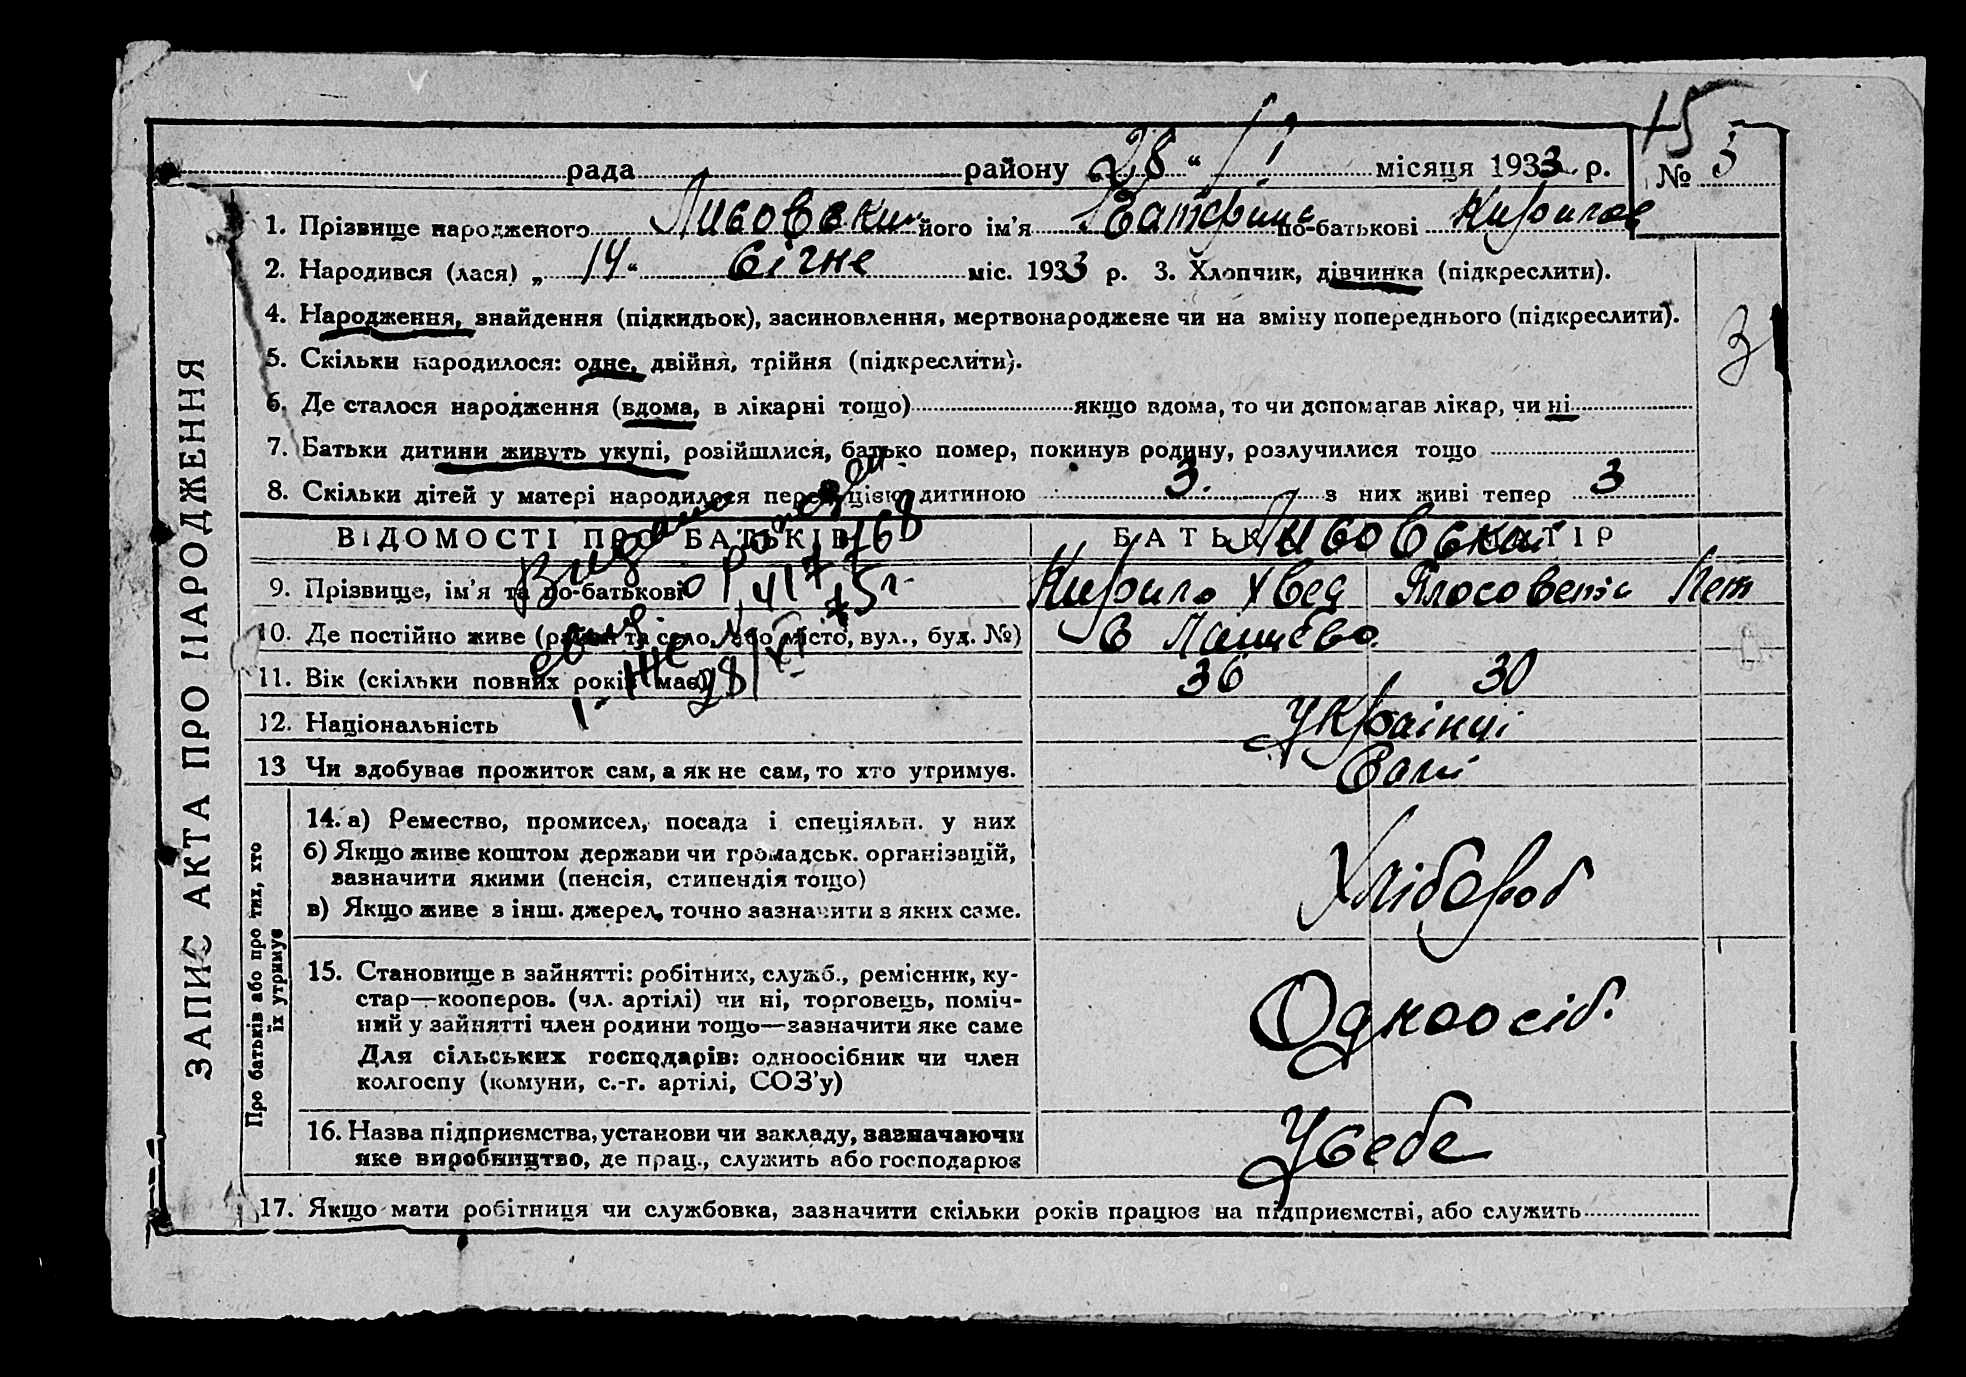 15
рада района „28“ I місяця 1933 р. № 3
1. Прізвище народженого Лисовски його ім'я Катерина по-батькові Кирилов
2. Народився (лася) „14“ Січне міс. 1933 р. 3. Хлопчик, дівчинка (підкреслити).
4. Народження, знайдення (підкидьок), засиновлення, мертвонароджене чи на зміну попереднього (підкреслити).
3
5. Скільки народилося: одне, двійня, трійня (підкреслити).
6. Де сталося народження (вдома, в лікарні тощо) якщо вдома, то чи допомагав лікар, чи ні
7. Батьки дитини живуть укупі, розійшлися, батько помер, покинув родину, розлучилися тощо
8. Скільки дітей у матері народилося перед цією дитиною 3. з них живі тепер 3
ВІДОМОСТІ ПРО БАТЬКІВ БАТЬКО МАТІР
Лисовски
9. Прізвище, ім'я та по-батькові Кирило Хвед
10. Де постійно живе (район та село, або місто, вул., буд. №) в
11. Вік (скільки повних років має) 36 30
12. Національність Українці
13 Чи здобуває прожиток сам, а як не сам, то хто утримує. Сами
14. а) Ремество, промисел, посада і спеціяльн. у них
б) Якщо живе коштом держави чи громадськ. організацій,
зазначити якими (пенсія, стипендія тощо)
в) Якщо живе з інш. джерел, точно зазначити з яких саме.
Хлібороб
15. Становище в зайнятті: робітник, служб., ремісник, ку-
стар—кооперов. (чл. артілі) чи ні, торговець, поміч-
ний у зайнятті член родини тощо—зазначити яке саме
Для сільських господарів: одноосібник чи член
колгоспу (комуни, с.-г. артілі, СОЗ'у)
Одноосіб.
16. Назва підприємства, установи чи закладу, зазначаючи
яке виробництво, де прац., служить або господарює
У себе
17. Якщо мати робітниця чи службовка, зазначити скільки років працює на підприємстві, або служить
Видано
ЗАПИС АКТА ПРО НАРОДЖЕННЯ
Про батьків або про тих, хто
їх утримує